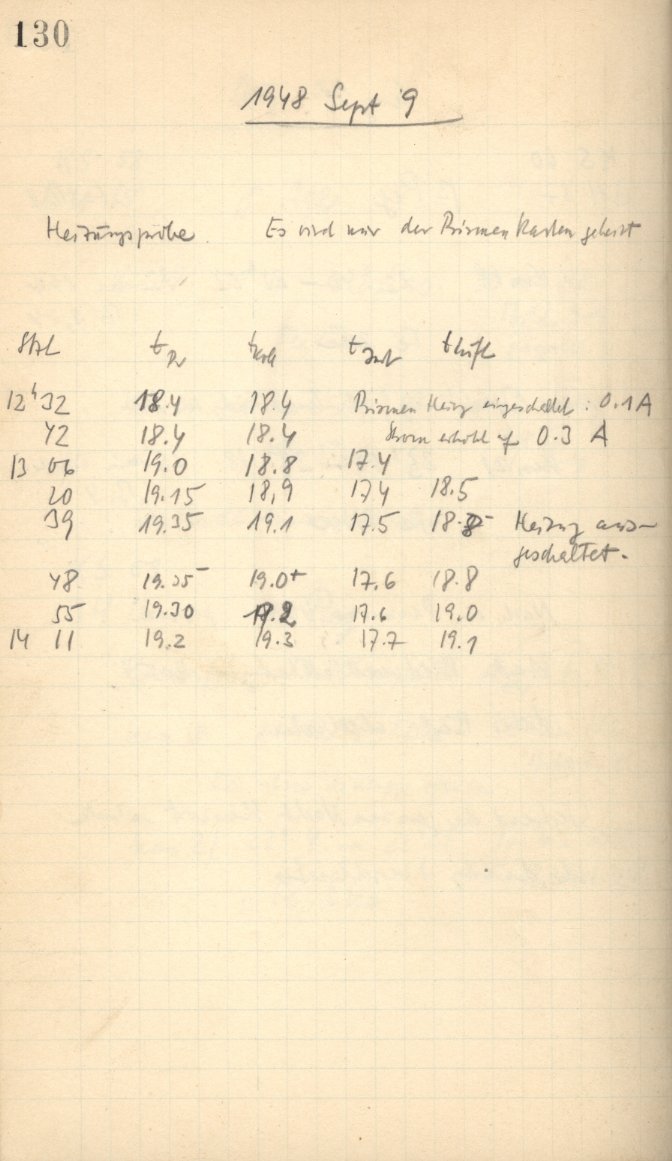 130
1948 Sept 9
Heizungsprobe. Es wird nur der Prismen Kasten geheizt
t Pr t Koll t t Luft
12h 32 18.4 18.4 Prismen Heizg eingeschaltet : 0.1 A
42 18.4 18.4 Strom erhöht auf 0.3 A
13 06 19.0 18.8 17.4
20 19.15 18,9 174 18.5
39 19.35 19.1 17.5 Heizung aus-
geschaltet.
48 19.35 19.0+ 17.6 18.8
55 19.30 17.6 19.0
14 11 19.2 19.3 17.7 19.1